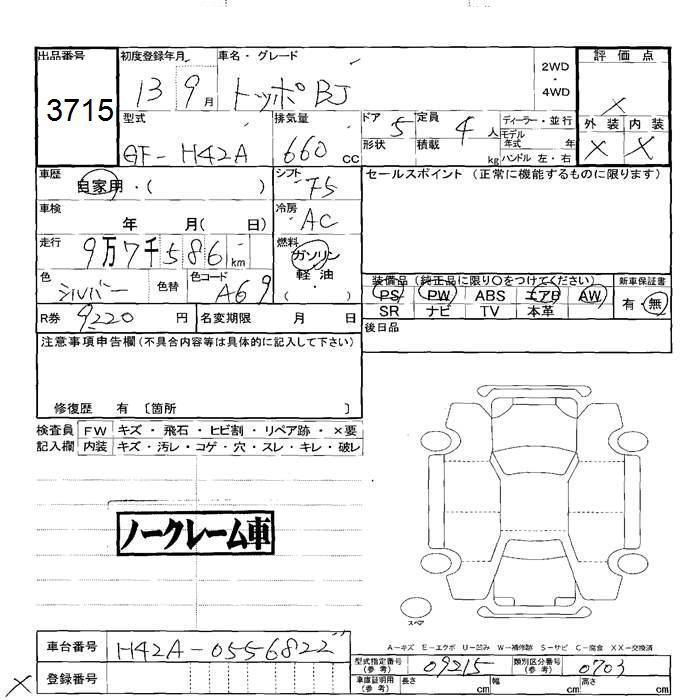 出品番号 初度登録年月 車名・グレード 2WD・4WD 評価点
3715 13 9月 トッポBJ ×
型式 排気量 ドア 5 定員 4人 ディーラー・並行 外装 内装
GF-H42A 660cc 形状 積載 kg モデル年式 年 ハンドル 左・右 × ×
車歴 自家用・( ) シフト F5 セールスポイント (正常に機能するものに限ります)
車検 年 月( 日) 冷房 AC
走行 9万7千586km 燃料 ガソリン 軽・油 ( ・ )
色 シルバー 色替 色コード A69 装備品 (純正品に限り○をつけてください) 新車保証書
PS PW ABS エアB AW 有・無
SR ナビ TV 本革
R券 9220円 名変期限 月 日 後日品
注意事項申告欄(不具合内容等は具体的に記入して下さい)
修復歴 有 〔箇所 〕
検査員 FW キズ・飛石・ヒビ割・リペア跡・×要
記入欄 内装 キズ・汚レ・コゲ・穴・スレ・キレ・破レ
ノークレーム車
スペア
A−キズ E−エクボ U−凹み W−補修跡 S−サビ C−腐食 XX−交換済
車台番号 H42A-0556822
型式指定番号(参考) 09215 類別区分番号(参考) 0703
× 登録番号 車庫証明用(参考) 長さ cm 幅 cm 高さ cm